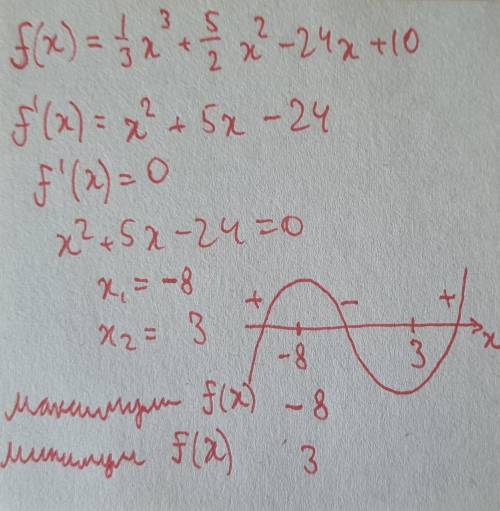 f(x) = 1/3 x³ + 5/2 x² - 24x + 10
f'(x) = x² + 5x - 24
f'(x) = 0
x² + 5x - 24 = 0
x₁ = -8
x₂ = 3
+ - +
-8 3 x
максимум f(x) -8
минимум f(x) 3